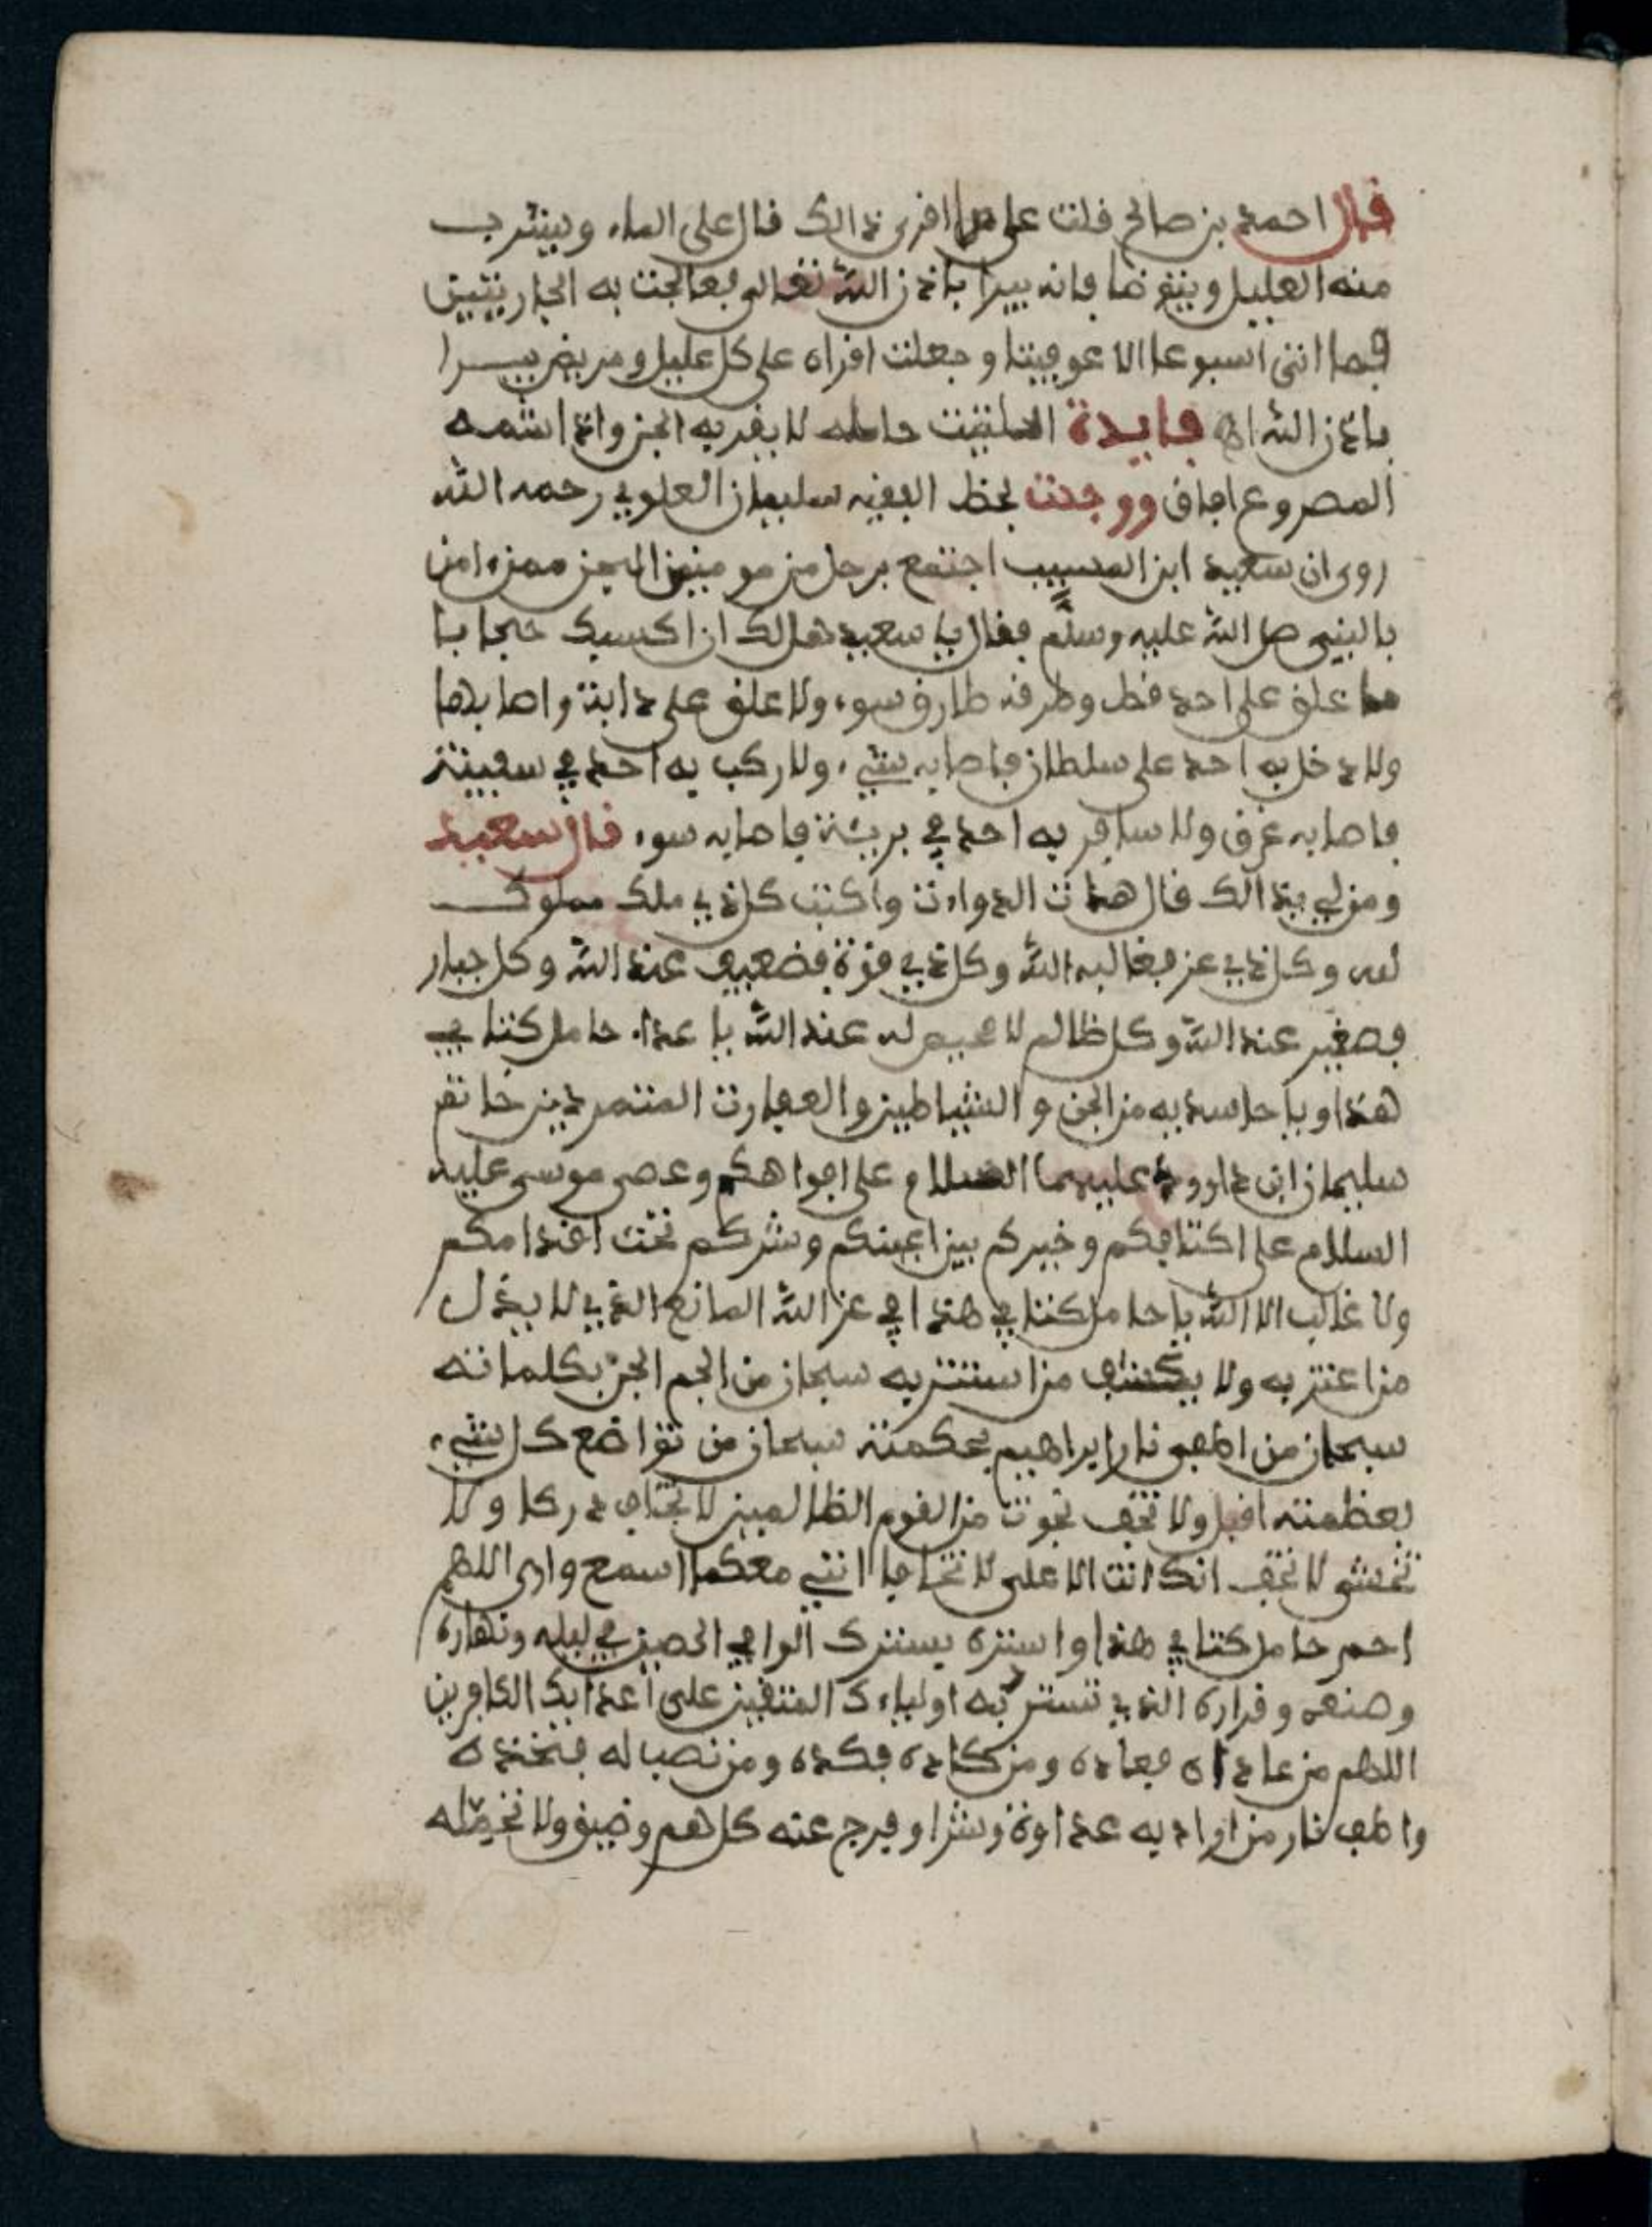 قال احمد بن صالح قلت على ما اقرى ذالك قال على الماء ويشرب
منه العليل ويتوضا فانه يبرا باذن الله تعالى فعالجت به الجاريتين
فما اتى اسبوعا الا عوفيتا وجعلت اقراه على كل عليل ومريض يبرا
باذن الله اه فايدة الحلتيت حامله لا يقربه الجن واذا اشتمه
المصروع افاق ووجدت بخط الفقيه سليمان العلوي رحمه الله
روى ان سعيد ابن المسيب اجتمع برجل من مومنين الجن ممن امن
بالنبي صل الله عليه وسلم فقال يا سعيد هل لك ان اكسيك حجابا
ما علق على احد قط وطرقه طارق سوء ولا علق على دابة واصابها
ولا دخل به احد على سلطان فاصابه شيء ولا ركب به احد في سفينة
فاصابه غرق ولا سافر به احد في برية فاصابه سوء قال سعيد
ومن لي بذالك قال هات الدوات واكتب كل ذي ملك مملوك
لله وكل ذي عز فغالبه الله وكل ذي قوة فضعيف عند الله وكل جبار
فصغير عند الله وكل ظالم لا محيص له عند الله يا عداء حامل كتابي
هذا ويا حاسديه من الجن و الشياطين والعفارت المتمردين خاتم
سليمان ابن داوود عليهما السلام على افواهكم وعصى موسى عليه
السلام على اكتافكم وخيركم بين اعينكم وشركم تحت اقدامكم
ولا غالب الا الله يا حامل كتابي هذا في عز الله المانع الذي لا يذل
من اعتز به ولا يكشف من استتر به سبحان من الجم الجن بكلماته
سبحان من اطفى نار ابراهيم بحكمته سبحان من تواضع كل شيء
بعظمته اقبل ولا تخف نجوت من القوم الظالمين لا تخاف دركا ولا
تخشى لا تخف انك انت الاعلى لا تخافا انني معكما اسمع وارى اللهم
احم حامل كتابي هذا واستره بسترك الوافي الحصين في ليله ونهاره
وضعنه وقراره الذي تستر به اولياءك المتقين على اعدايك الكافرين
اللهم من عاداه فعاده ومن كاده فكده ومن نصب له فخذه
واطف نار من اراد به عداوة وشرا وفرج عنه كل هم وضيق ولا تحمله